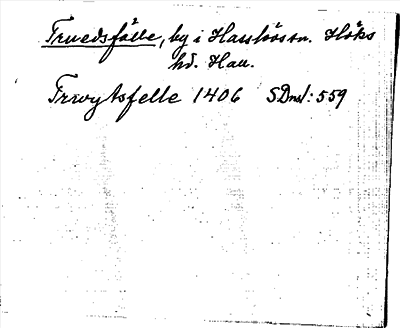 Truedsfälle, by i Hasslövs sn. Höks
hd. Hall.
Trwytsfelle 1406 SDns1:559